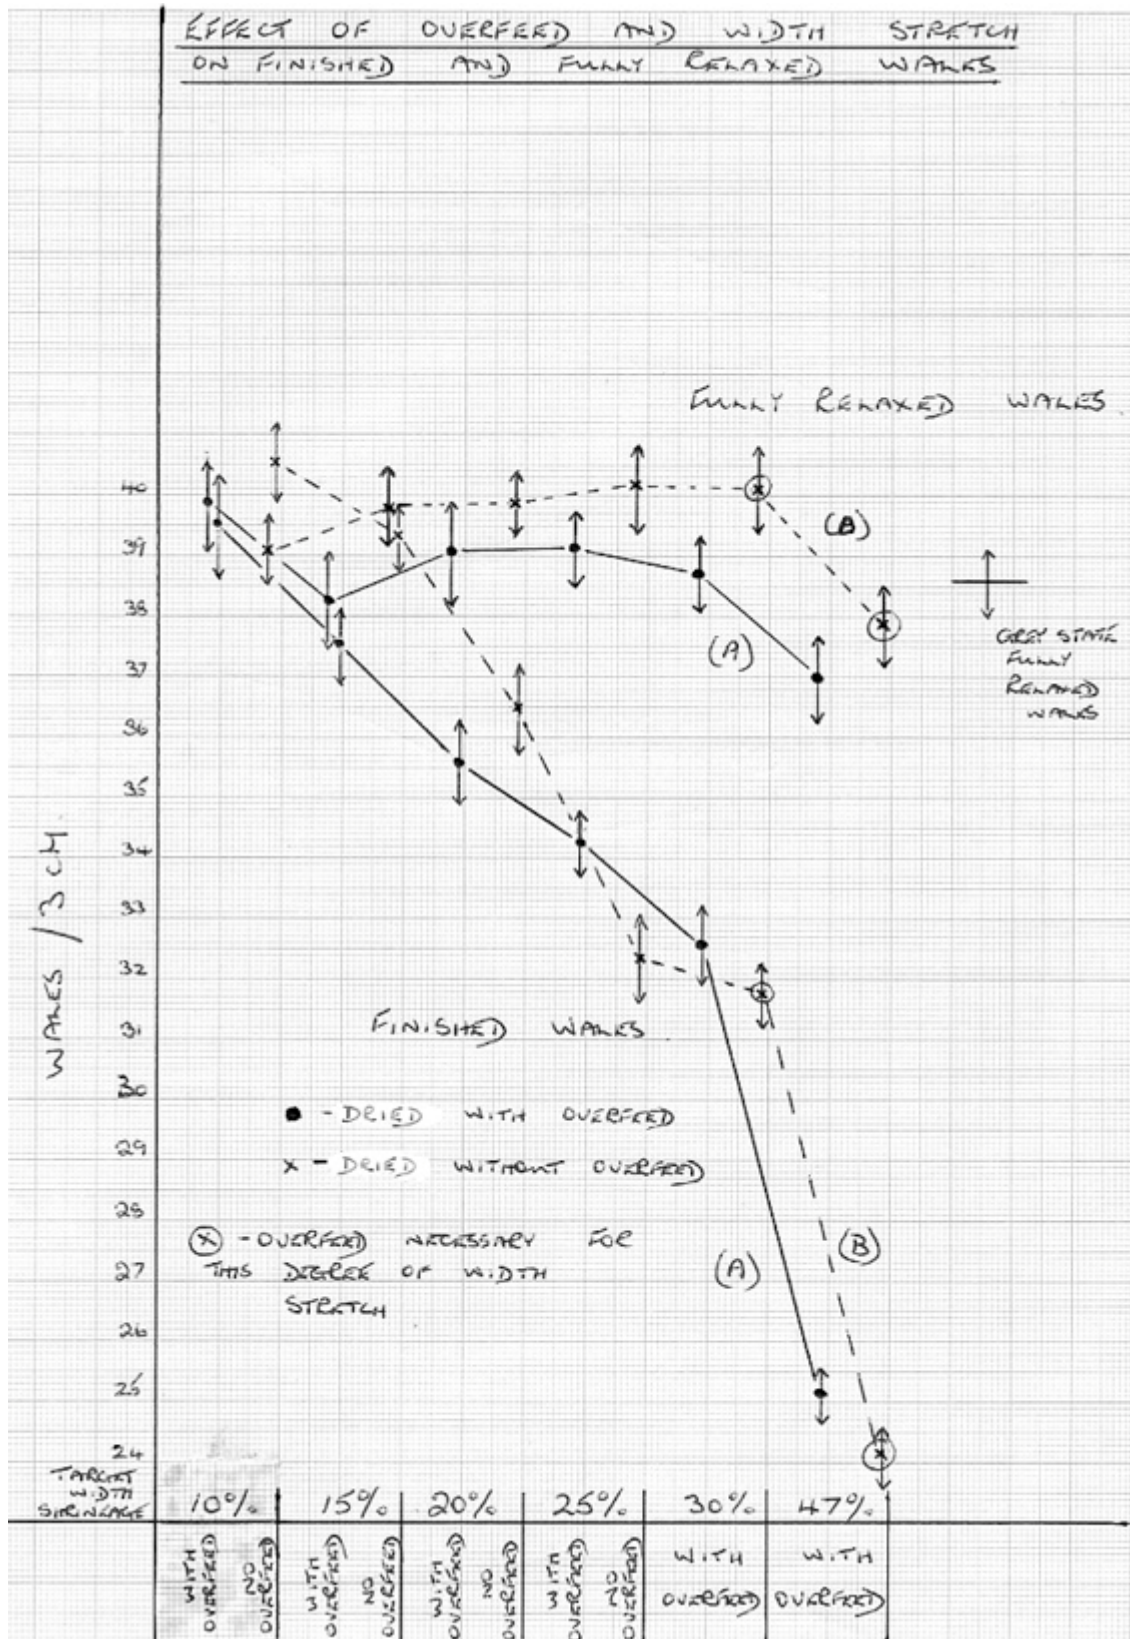 EFFECT OF OVERFEED AND WIDTH STRETCH
ON FINISHED AND FULLY RELAXED WALES
FULLY RELAXED WALES
40
39
38
37
36
35
34
33
32
31
30
29
28
27
26
25
24
WALES / 3 CM.
(B)
(A)
GREY STATE
FULLY
RELAXED
WALES
FINISHED WALES
● - DRIED WITH OVERFEED
x - DRIED WITHOUT OVERFEED
ⓧ - OVERFEED NECESSARY FOR
THIS DEGREE OF WIDTH
STRETCH
(A)
(B)
TARGET
WIDTH
SHRINKAGE
10% 15% 20% 25% 30% 47%
WITH OVERFEED
NO OVERFEED
WITH OVERFEED
NO OVERFEED
WITH OVERFEED
NO OVERFEED
WITH OVERFEED
NO OVERFEED
WITH
OVERFEED
WITH
OVERFEED